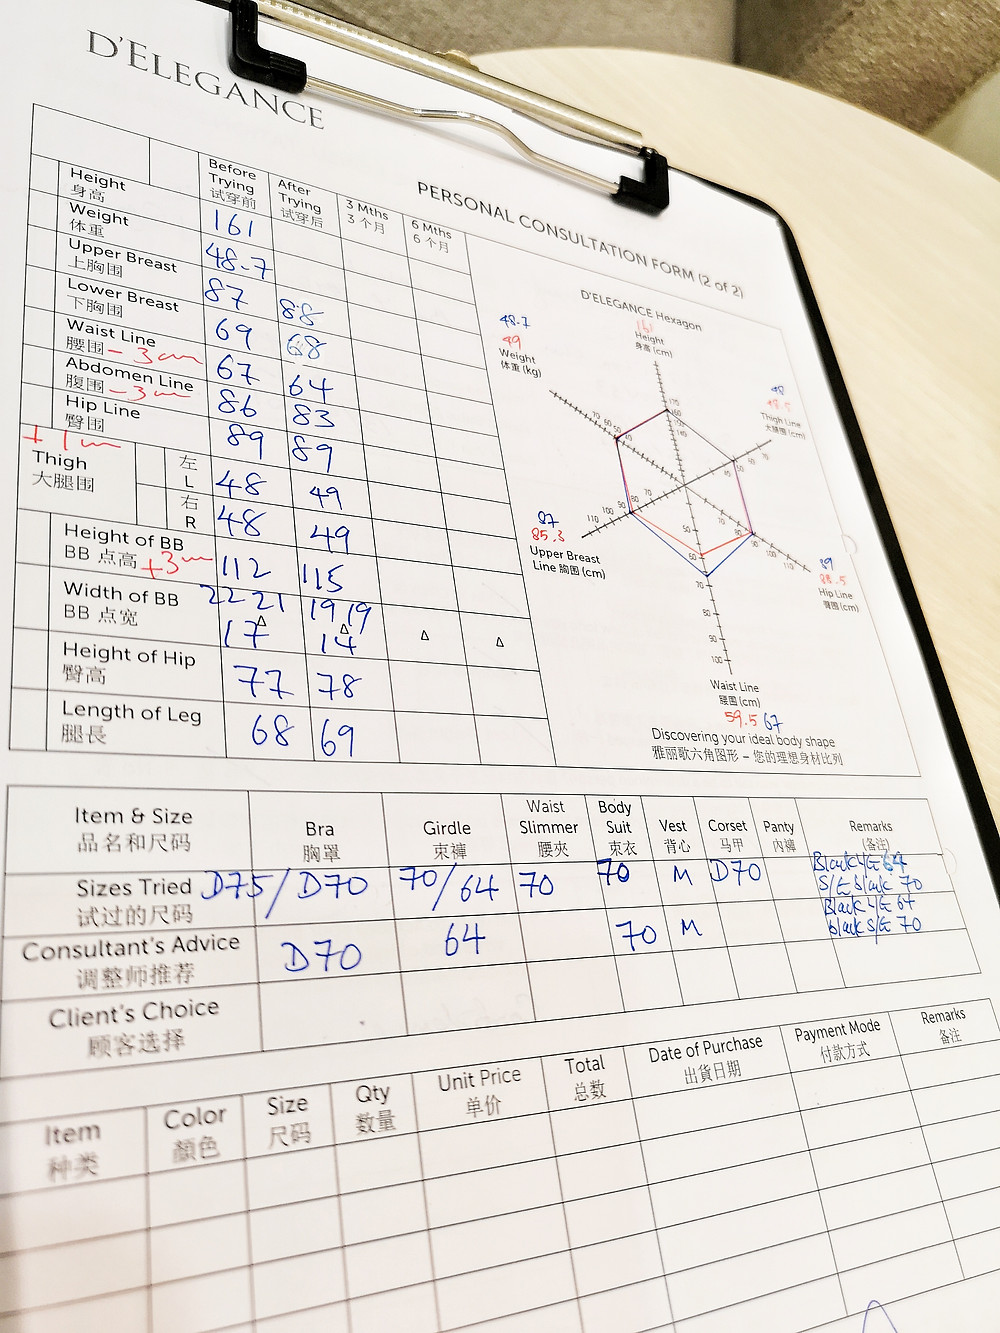 D'ELEGANCE
PERSONAL CONSULTATION FORM (2 of 2)
Before Trying 试穿前
After Trying 试穿后
3 Mths 3 个月
6 Mths 6 个月
Height 身高 161
Weight 体重 48.7
Upper Breast 上胸围 87 88
Lower Breast 下胸围 69 68
Waist Line 腰围 -3cm 67 64
Abdomen Line 腹围 -3cm 86 83
Hip Line 臀围 89 89
+1cm
Thigh 大腿围
左 L 48 49
右 R 48 49
Height of BB BB 点高 +3cm 112 115
Width of BB BB 点宽 22 21 19 19
17 14
Height of Hip 臀高 77 78
Length of Leg 腿長 68 69
D'ELEGANCE Hexagon
161
Height
身高 (cm)
48.7
49
Weight
体重 (kg)
48
48.5
Thigh Line
大腿围 (cm)
87
85.3
Upper Breast
Line 胸围 (cm)
89
88.5
Hip Line
臀围 (cm)
Waist Line
腰围 (cm)
59.5 67
Discovering your ideal body shape
雅丽歌六角图形 – 您的理想身材比列
Item & Size 品名和尺码
Bra 胸罩
Girdle 束褲
Waist Slimmer 腰夾
Body Suit 束衣
Vest 背心
Corset 马甲
Panty 內褲
Remarks (备注)
Sizes Tried 试过的尺码 D75/D70 70/64 70 70 M D70 Black L/E 64
S/E black 70
Consultant's Advice 调整师推荐 D70 64 70 M Black L/E 64
black S/E 70
Client's Choice 顾客选择
Item 种类
Color 顏色
Size 尺码
Qty 数量
Unit Price 单价
Total 总数
Date of Purchase 出貨日期
Payment Mode 付款方式
Remarks 备注